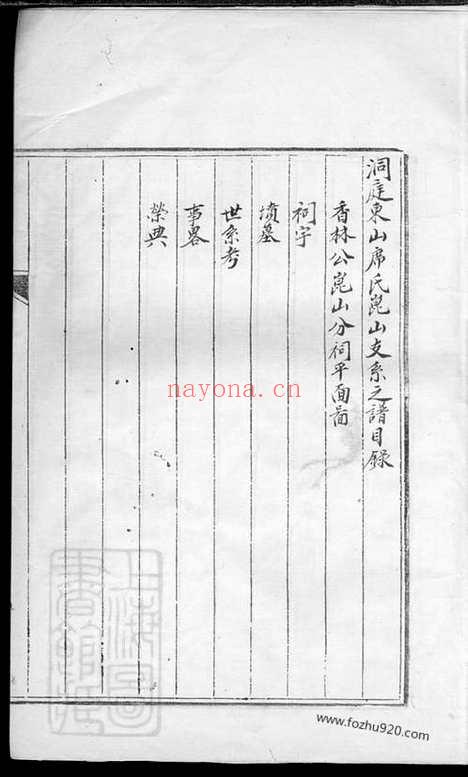 洞庭東山席氏崑山支系之譜目錄
香林公崑山分祠平面啚
祠宇
墳墓
世系考
事畧
榮典
nayona.cn
上海圖書館藏
www.fozhu920.com